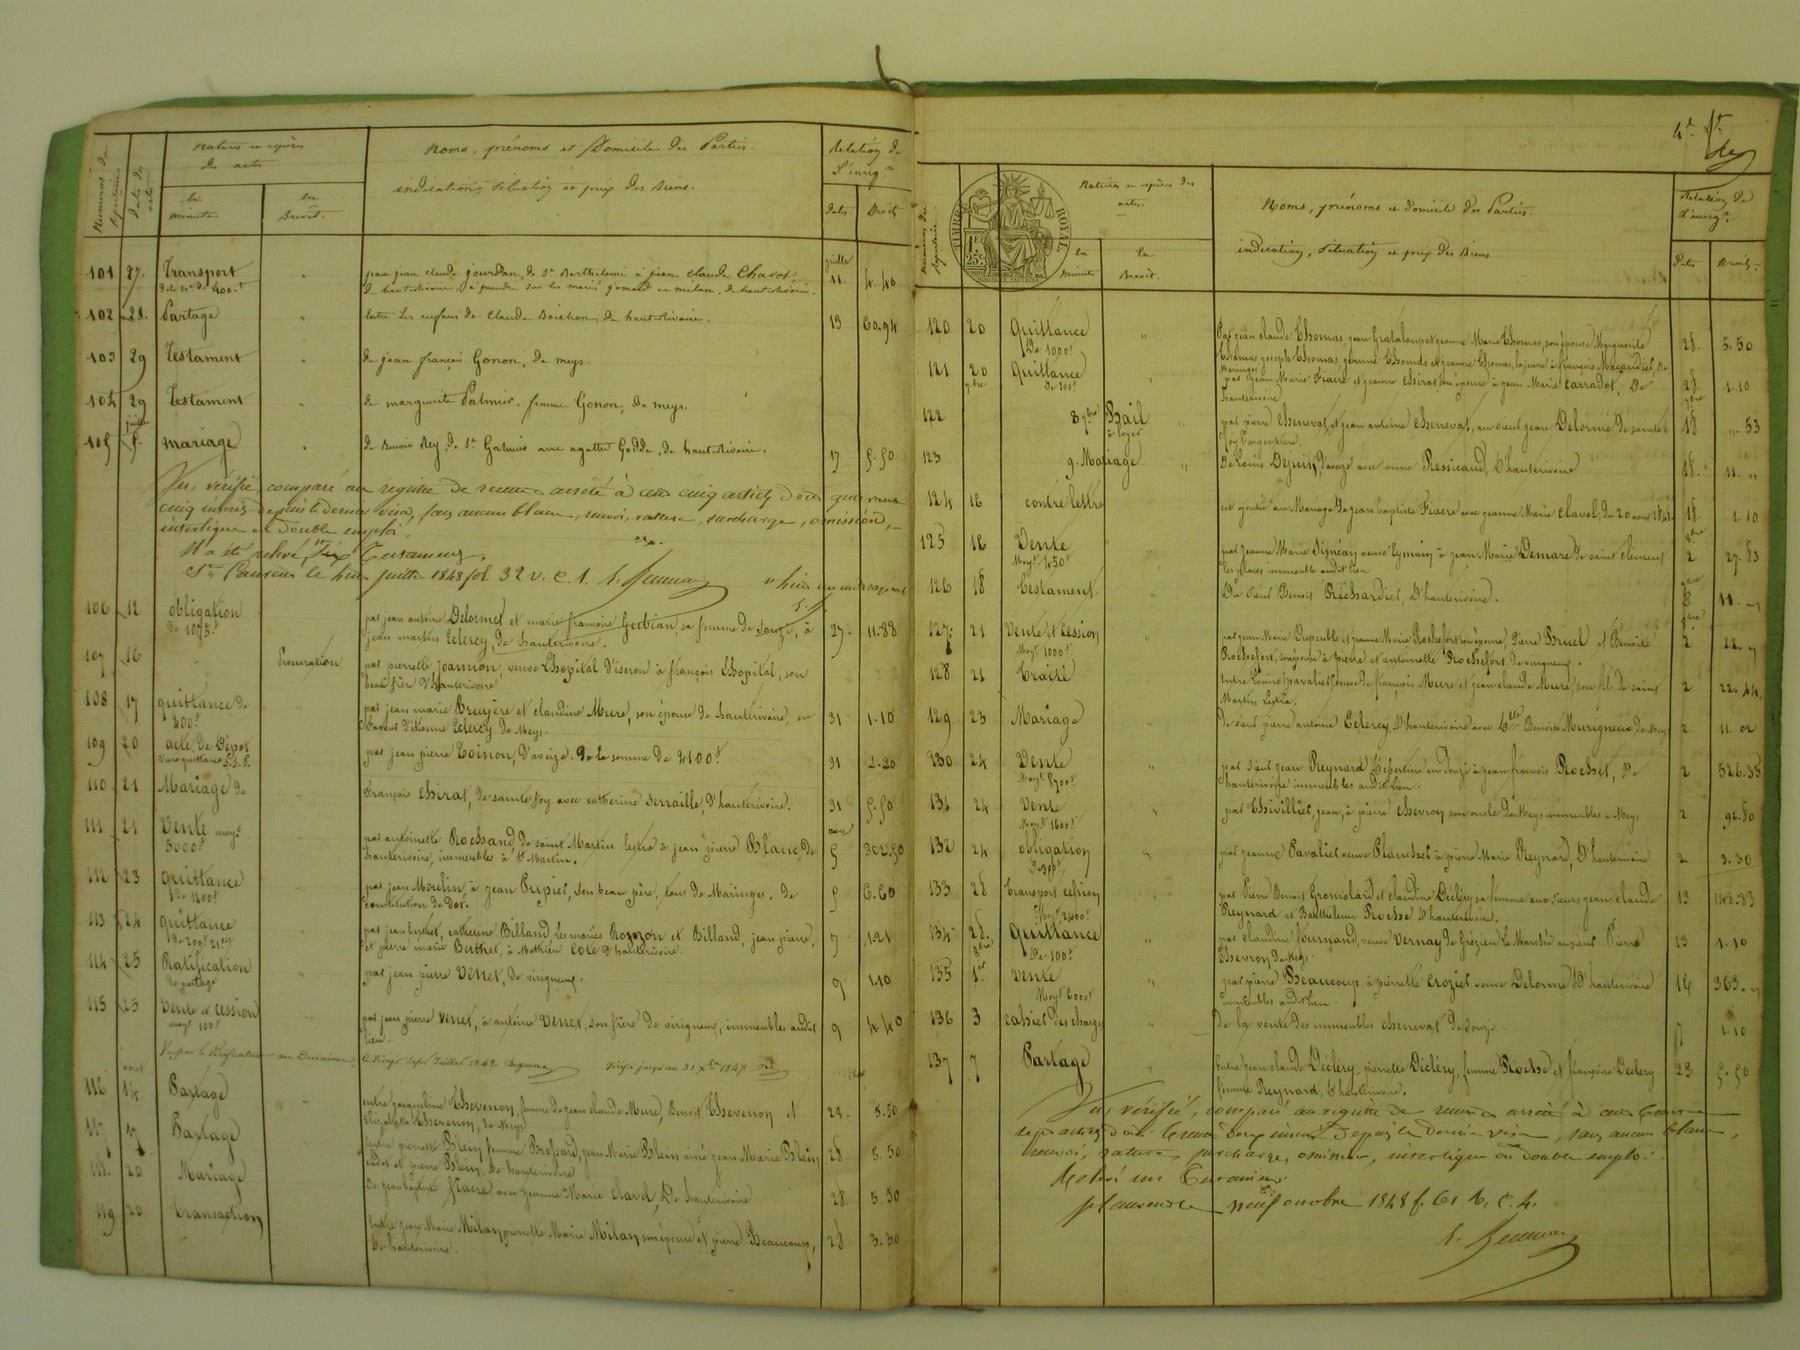 Numéros du Répertoire
Dates des actes
Natures et espèces
des actes
en
minute
en
Brevet.
Noms, prénoms et Domicile des Parties.
indication, situation et prix des Biens.
Relation de
l'enreg.t
Dates.
Droits
101 27. Transport par jean claude jourdan, de St Barthelemi à jean claude Chavot juillet
de 400.f de haut-Rivoire, à prendre sur les mariés de haut-Rivoire. 11. 4.40
102 28. Partage Entre les enfans de Claude de haut-Rivoire. 13 60.94
103 29 Testament de jean françois Gonon, de meys.
104 29 Testament de marguerite Palmier, femme Gonon, de meys.
juillet
105 5. mariage de Benoit Rey, de St Galmier avec agathe Godde, de haut-Rivoire. 17 5.50
Vu, vérifié, comparé au registre de arrêté à cent cinq articles dont quarante
cinq inscrits depuis le dernier visa, sans aucun blanc, renvoi, rature, surcharge, omission,
interligne ou double emploi.
Il a été relevé Testamens.
St Laurent le huit juillet 1848 fol. 32 v. C. 1.
106 12 obligation par jean antoine Delorme et marie françoise Gubian, sa femme de Souzy, à 27. 11.88
De 1075.f jean martin Eclercy, de hauterivoire.
107 16 Procuration par pierrette joannon, veuve Lhopital d'iseron à françois Lhopital, son
beau frère d'hauterivoire
108 17 quittance de par jean marie Bruyère et claudine Mure, son épouse de hauterivoire, en 31 1.10
300f faveur d'étienne Eclercy de Meys.
109 20 acte de Dépot par jean pierre Coinon, d'aveize. de la somme de 4100f 31 2.20
d'une quittance S.S.P.
110 21 Mariage de françois Chirat, de sainte foy avec catherine Serraille, d'hauterivoire. 31 5.50
aout
111 21 Vente moyt par antoinette Rochand, de saint Martin lestra à jean pierre Blanc, de 5 302.50
5000f hauterivoire, immeuble à St Martin.
112 23 quittance par jean Moulin, à jean Pupier, son beau père, tous de Maringes. de 5 6.60
De 1200f constitution de Dot.
113 24 quittance par jean berthet, catherine Billand, les mariés et Billand, jean pierre, 7 1.21
et pierre marie Berthet, à Mathieu Cote d'hauterivoire.
114 25 Ratification par jean pierre Venet, de virigneux. 9 1.10
de partage
115 25 Vente et Cession par jean pierre Venet, à antoine Venet, son frère de virigneux, immeubles audit 9 4.40
moyt 100f lieu.
Vu par le Vérificateur des Domaines, le Vingt sept Juillet 1848. Vérifié jusqu'au 31 Xbre 1847
aout
116 14 Partage entre jacqueline Thevenon, femme de jean claude Mure, Benoit Thevenon et 28. 5.50
Elizabeth Thevenon, de Meys
117 17 Partage Entre pierrette Blein femme Brossard, jean Marie Blein ainé jean Marie Blein 28 5.50
cadet et pierre Blein, de hauterivoire
118. 20 Mariage De jean baptiste Fiacre avec jeanne Marie Clavel, De hauterivoire 28. 5.50
119 20 Transaction Entre jean Marie Milan, pierrette Marie Milan son épouse et pierre Beaucoup, 28 3.30
De hauterivoire.
Numéros du
Répertoire
TIMBRE ROYAL
1 F.
25 C.
Natures et espèces des
actes.
en
minute
en
Brevet.
Noms, prénoms et domicile des Parties.
indication, situation et prix des Biens
Relation de
l'enreg.t
Dates
Droits.
120 20 Quittance Par jean claude Thomas, jean Grataloup et jeanne Marie Thomas, son épouse Marguerite 28. 5.50
De 1000f Thomas joseph Thomas, jeanne Thomas et jeanne Thomas, la jeune à françois De
Maringes
121 20 Quittance par jean Marie Fiacre et jeanne Chirat son épouse à jean Marie Carradot, De 28 1.10
De 200f hauterivoire.
7bre
122 8 7bre Bail par pierre Chenevat, et jean antoine Chenevat, au sieur jean Delorme de sainte 18 „ 53
à loyer foy l'argentière.
123 9. Mariage De Louis Dejuin, d'aveize avec anne Ressicaud, d'hauterivoire 18. 11. „
124 16 contre lettre est ajoutée au Mariage de jean baptiste Fiacre avec jeanne Marie Clavel, du 20 aout 1848. 18. 1.10
8bre
125 16 Vente par jeanne Marie veuve Eymain à jean Marie Demare de saint clément 2 27.83
Moyt 450f les places immeuble audit lieu
126 18 Testament. Du sieur Benoit Prichardier, d'hauterivoire. 8 11. „
127 21 Vente et Cession par jean Marie Dupeuble et jeanne Marie Rochefort son épouse, Pierre Bruel et Benoite 2 22. „
Moyt 1000f Rochefort, son épouse à pierre et antoinette Rochefort de virigneux.
128 21 Traité Entre Louise Pavalier veuve de françois Mure et jean claude Mure, son fils de saint 2 22.44.
Martin Lestra.
129 23 Mariage De sieur pierre antoine Eclercy, d'hauterivoire avec Dlle Benoite Mourigneux de Meys 2. 11.02
130 24 Vente par sieur jean Reynard à jean françois Rochet, De 2 526.35
Moyt 8700f hauterivoire immeubles audit lieu.
131 24 Vente par Thivillier, jean, à pierre Chevron son oncle de Meys immeubles à Meys 2 92.80
Moyt 1600f
132 24 obligation par jeanne Pavalier veuve Planchet à pierre Marie Reynard, d'hauterivoire 2. 3.30
133 28 Transport cession par Pierre Benoit Gromolard et claudine Decléry sa femme aux sieurs jean claude 13 148.83
Moyt 2400f Reynard et Barthelemi Roche d'hauterivoire.
134 28. Quittance par claudine Journand, veuve Vernay de Grézieu le Marché au sieur Pierre 13 1.10
De 100f Chevron de Meys.
8bre
135 1er Vente par pierre Beaucoup à pierrette Crozier veuve Delorme d'hauterivoire 16 363. „
Moyt 6000f immeubles audit lieu.
136 3 Cahier des charges De la vente des immeubles Chenevat de Souzy 7 1.10
137 7 Partage Entre jean claude Decléry, pierrette Decléry, femme Roche et françoise Declery 23 5.50
femme Reynard, d'hauterivoire.
Vu, vérifié, comparé au registre de arrêté à cent trente
sept articles dont trente deux inscrits depuis le dernier visa, sans aucun blanc,
renvoi, rature, surcharge, omission, interligne ou double emploi.
Relevé un Testament.
St Laurent le neuf octobre 1848 f. 61 C. 4.